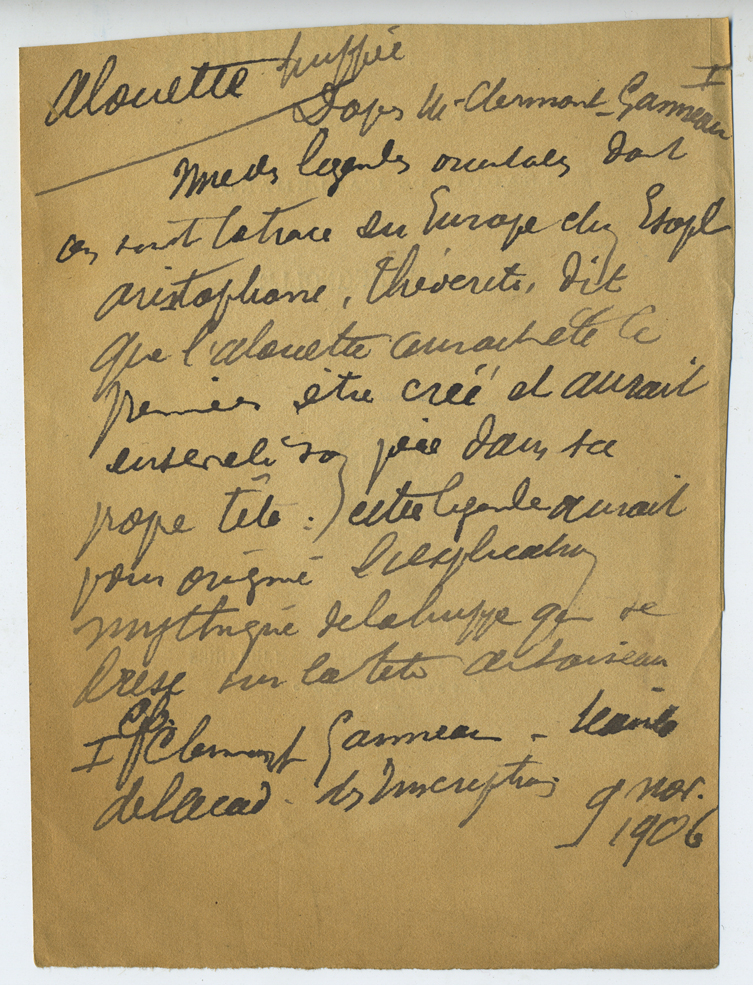 Alouette huppée
D'après M. Clermont-Ganneau I
Une des légendes orientales dont
on suit la trace en Europe chez Esope
Aristophane, Théocrite, dit
que l'alouette aurait été le
premier être créé et aurait
enseveli son père dans sa
propre tête : cette légende aurait
pour origine l'explication
mythique de la huppe qui se
dresse sur la tête de l'oiseau
I Cf. Clermont Ganneau -
de l'Acad. des Inscriptions 9 nov.
1906